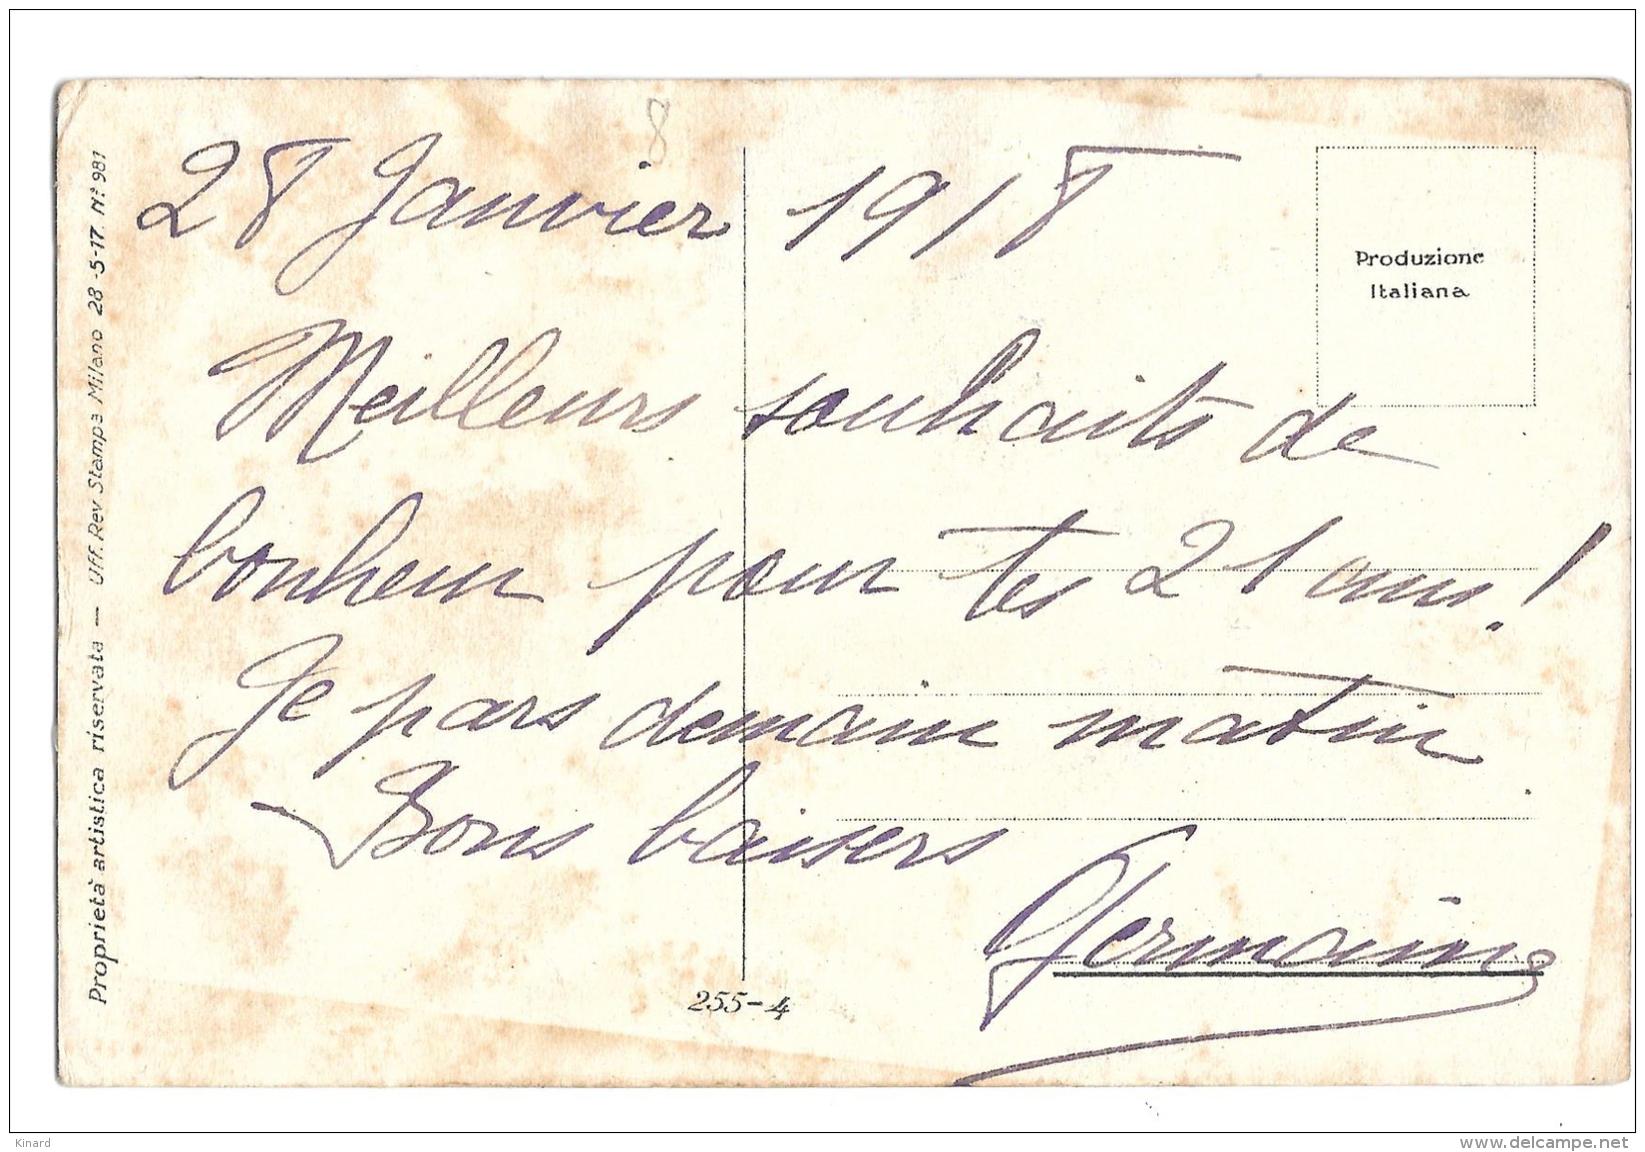 8
28 Janvier 1918
Produzione
Italiana
Meilleurs souhaits de
bonheur pour tes 21 ans!
Je pars demain matin
Bons baisers
Germaine
255-4
Proprietà artistica riservata — Uff. Rev. Stampa Milano 28-5-17. N° 981
Kinard
www.delcampe.net